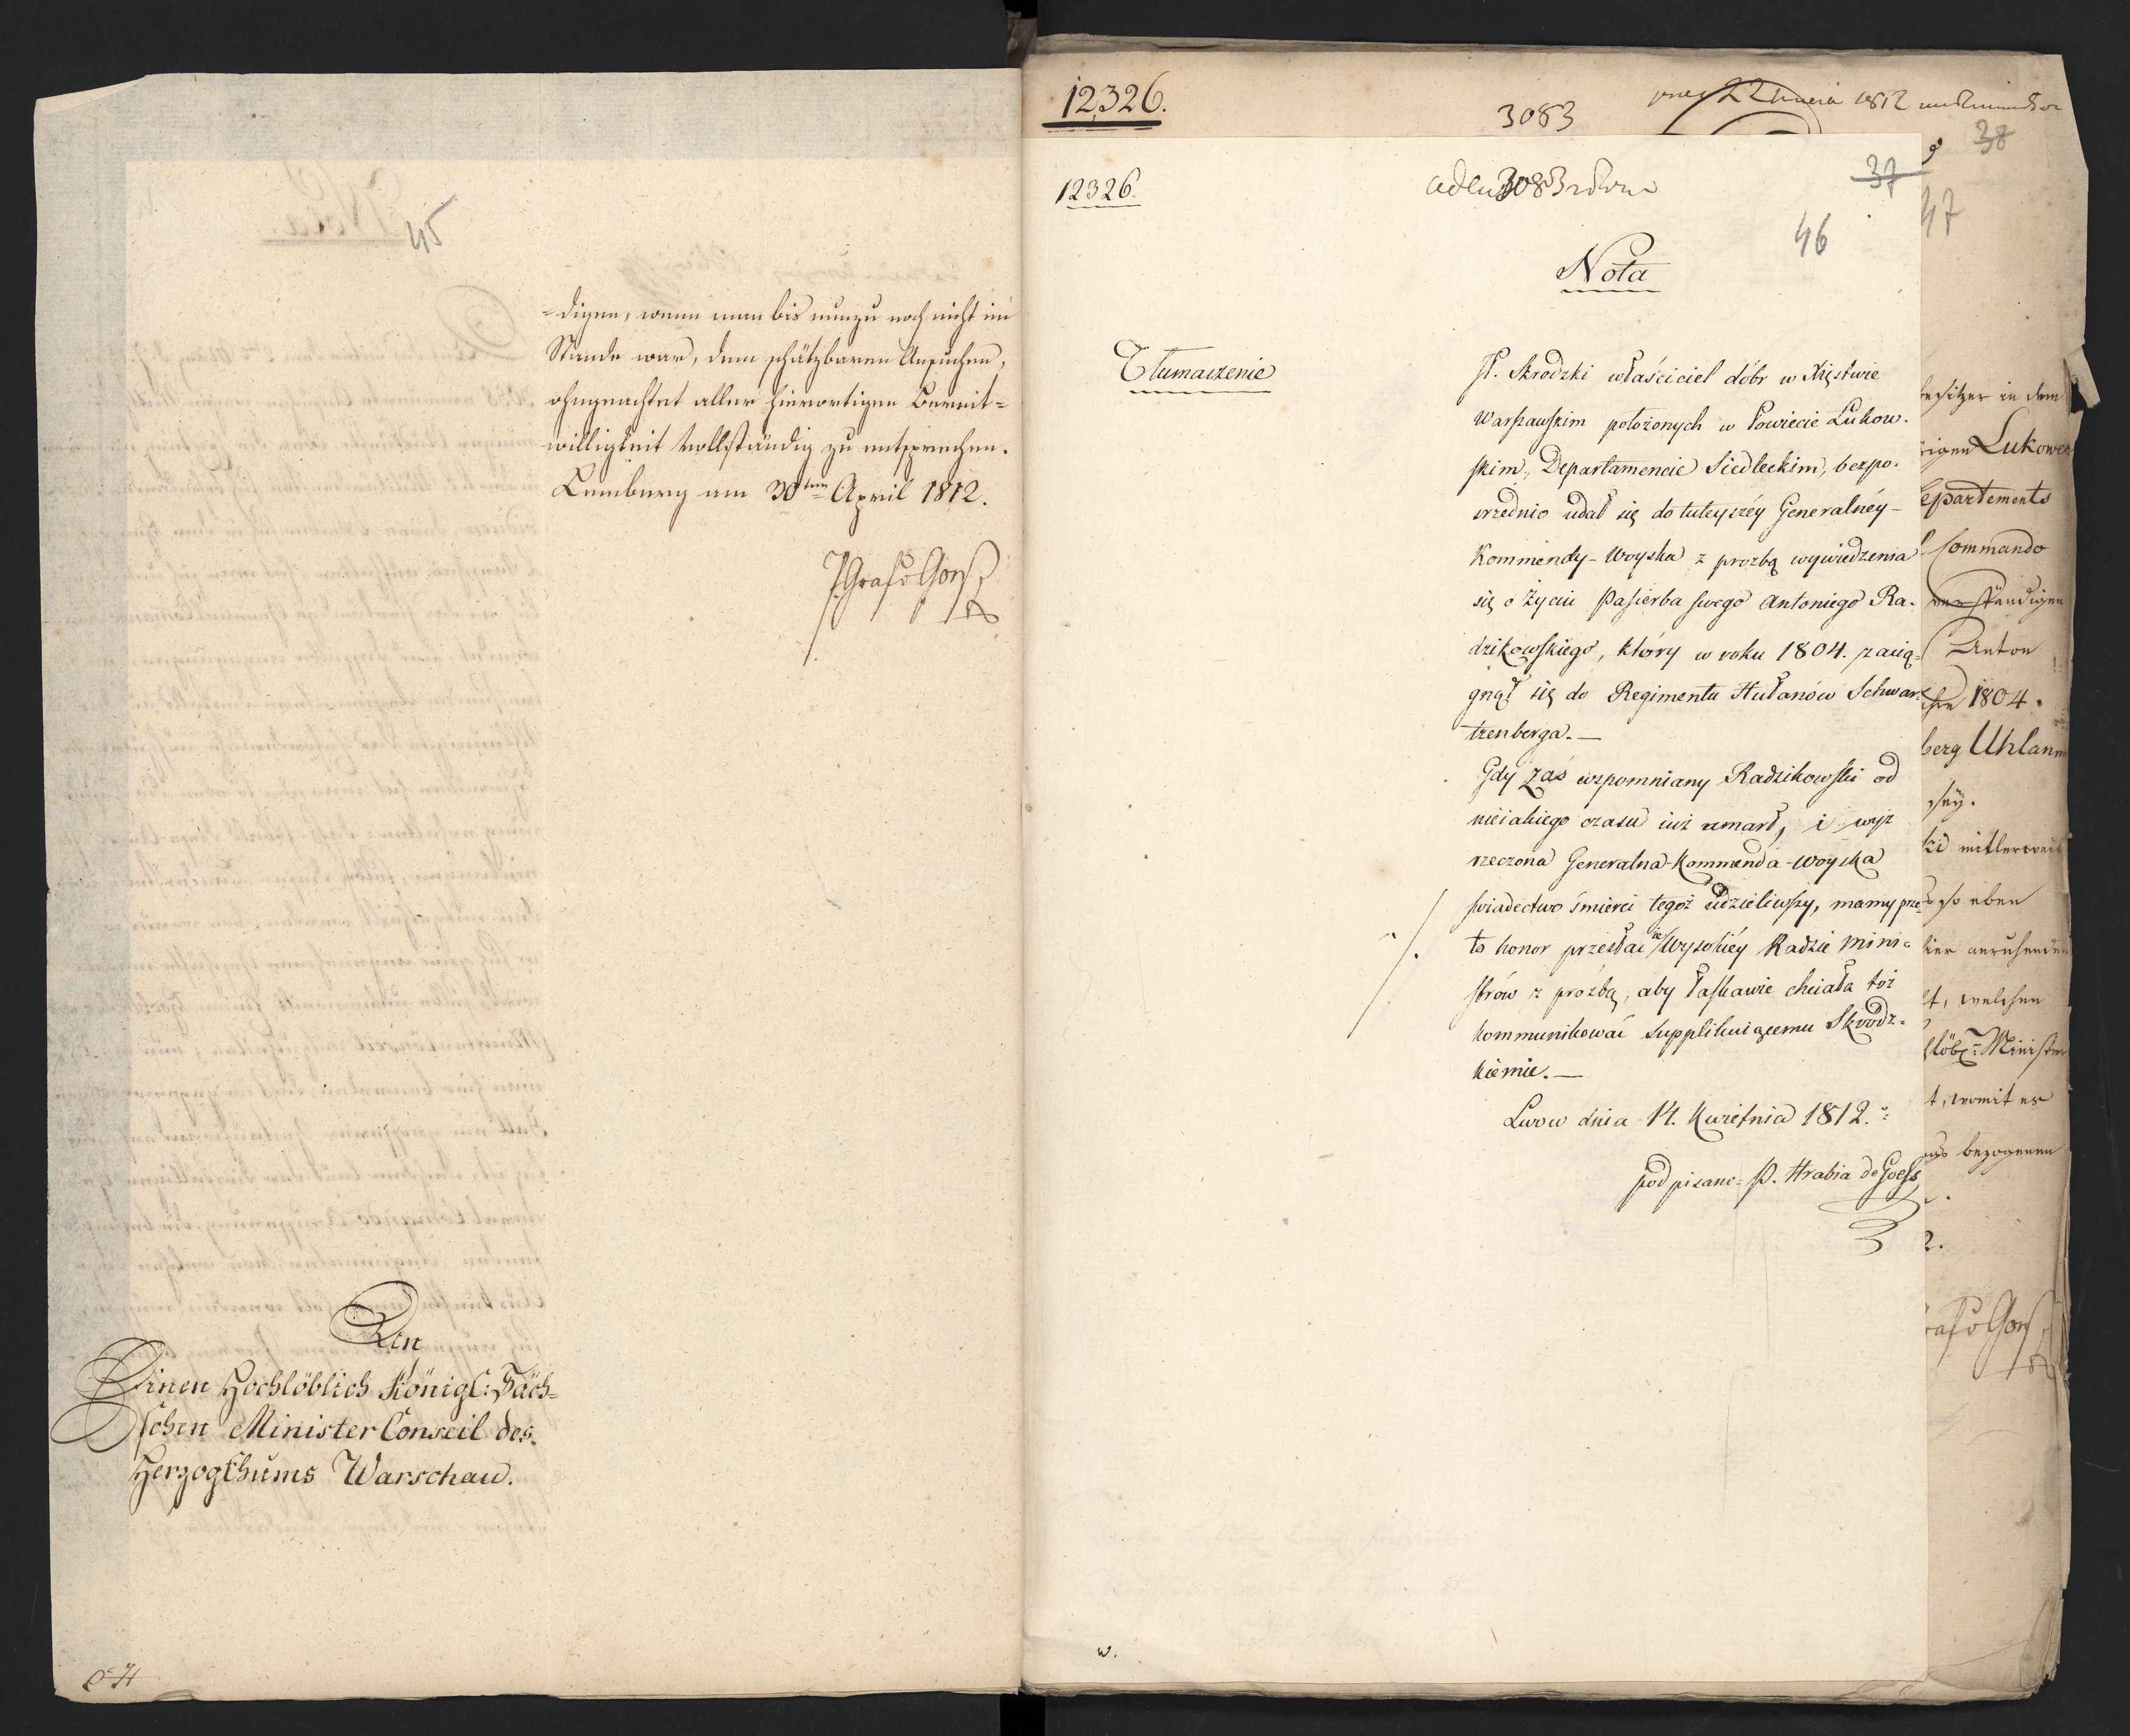 45
=digen, wenn man bis nunzu noch nicht im
Stande war, dem schätzbaren Ansuchen,
ohngeachtet aller hierortigen Bereit=
willigkeit vollständig zu entsprechen.
Lemberg am 30ten April 1812.
PGrafvGoëß
An
Einen Hochlöblich Königl: Säch=
schen Minister Conseil des
Herzogthums Warschau.
12326.
3083
22 1812
38
12326.
3083
37
47
46
Nota
Tłumaczenie
P. Skrodzki właściciel dóbr w Xięstwie
Warszawskim położonych w Powiecie Łukow.
skim, Departamencie Siedleckim, bezpo.
srzednio udał się do tuteyszéy Generalnéy-
Kommendy-Woyska z prozbą wywiedzenia
się o życiu Pasierba swego Antoniego Ra.
dzikowskiego, który w roku 1804. zacią=
gnął się do Regimentu Hułanów Schwar=
tzenberga.—
Gdy zaś wzpomniany Radzikowski od
nieiakiego czasu iuż umarł, i wyż
rzeczona Generalna-Kommenda-Woyska
swiadectwo śmierci tegoż udzieliwszy, mamy prze=
to honor przesłać ie Wysokiéy Radzie Mini=
strów z prózbą, aby łaskawie chciała toż
kommunikować supplikuiącemu Skrodz=
kiemu.—
Lwow dnia 14. Kwietnia 1812.
podpisano= P. Hrabia de Goess
w.
besitzer in dem
rigen Lukower
epartements
Commando
verständigen
Anton
1804.
berg Uhlanen
sey.
ki mitlerweil
so eben
hier anruhenden
t, welchen
löbl: Minister
t, womit er
bezogenen
2.
rafvGoëß